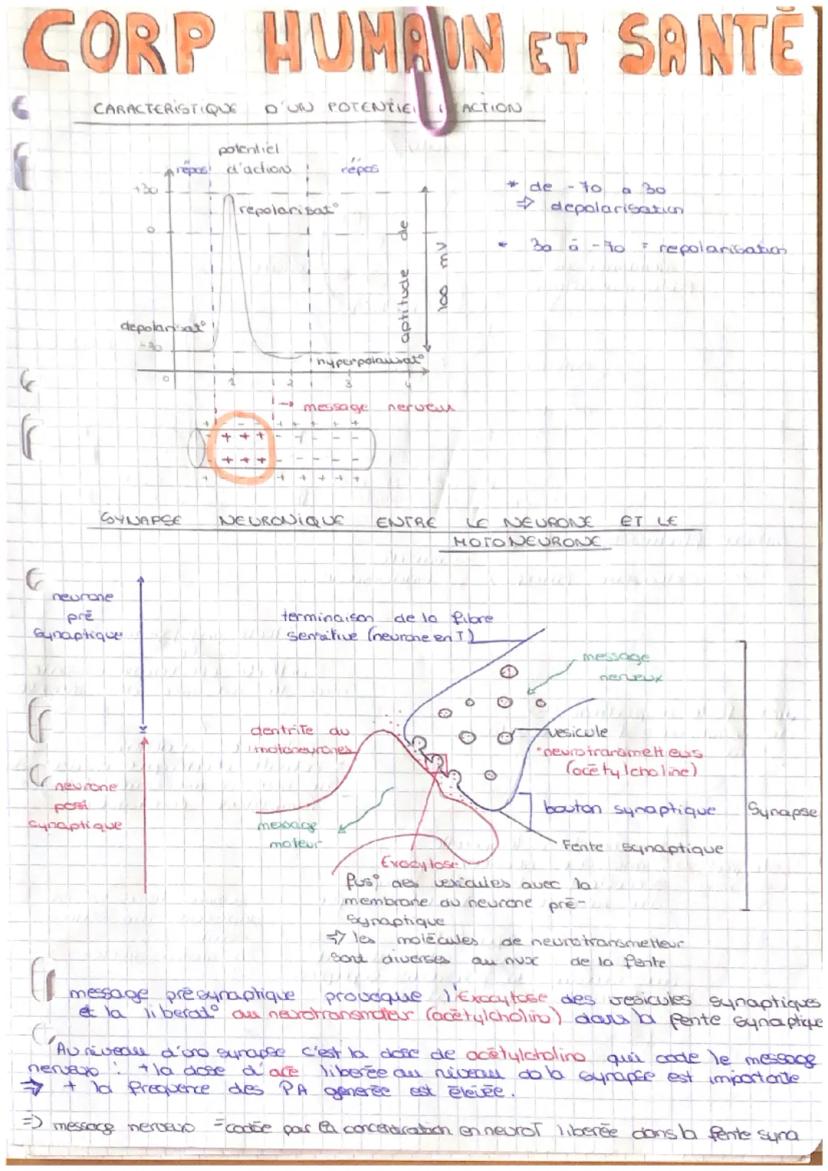 CORP HUMAIN ET SANTÉ
CARACTERISTIQUE D'UN POTENTIEL ACTION
potentiel
répos d'action répos
+30
repolarisat°
0
aptitude de
100 mV
depolarisat°
-70
hyperpolarisat°
0 1 2 3 4
→ message nerveux
+ + +
+ + +
* de -70 a 30
⇒ depolarisation
* 30 à -70 = repolarisation
SYNAPSE NEURONIQUE ENTRE LE NEURONE ET LE
MOTONEURONE
neurone
pré
synaptique
neurone
post
synaptique
terminaison de la fibre
sensitive (neurone en T)
message
nerveux
dentrite du
motoneurones
vesicule
neurotransmetteurs
(acétylcholine)
bouton synaptique
Synapse
message
moteur
Fente synaptique
Exocytose
fus° des vesicules avec la
membrane du neurone pré-
synaptique
⇒ les molécules de neurotransmetteur
sont diverses au nux de la fente
message présynaptique provoque l'Exocytose des vesicules synaptiques
et la liberat° du neurotransmetteur (acétylcholino) dans la fente synaptique
Au niveau d'une synapse c'est la dose de acétylcholino qui code le message
nerveux : + la dose d'acé liberée au niveau de la synapse est importante
⇒ + la frequence des PA generée est élevée.
⇒ message nerveux = codée par la concentration en neuroT liberée dans la fente syna